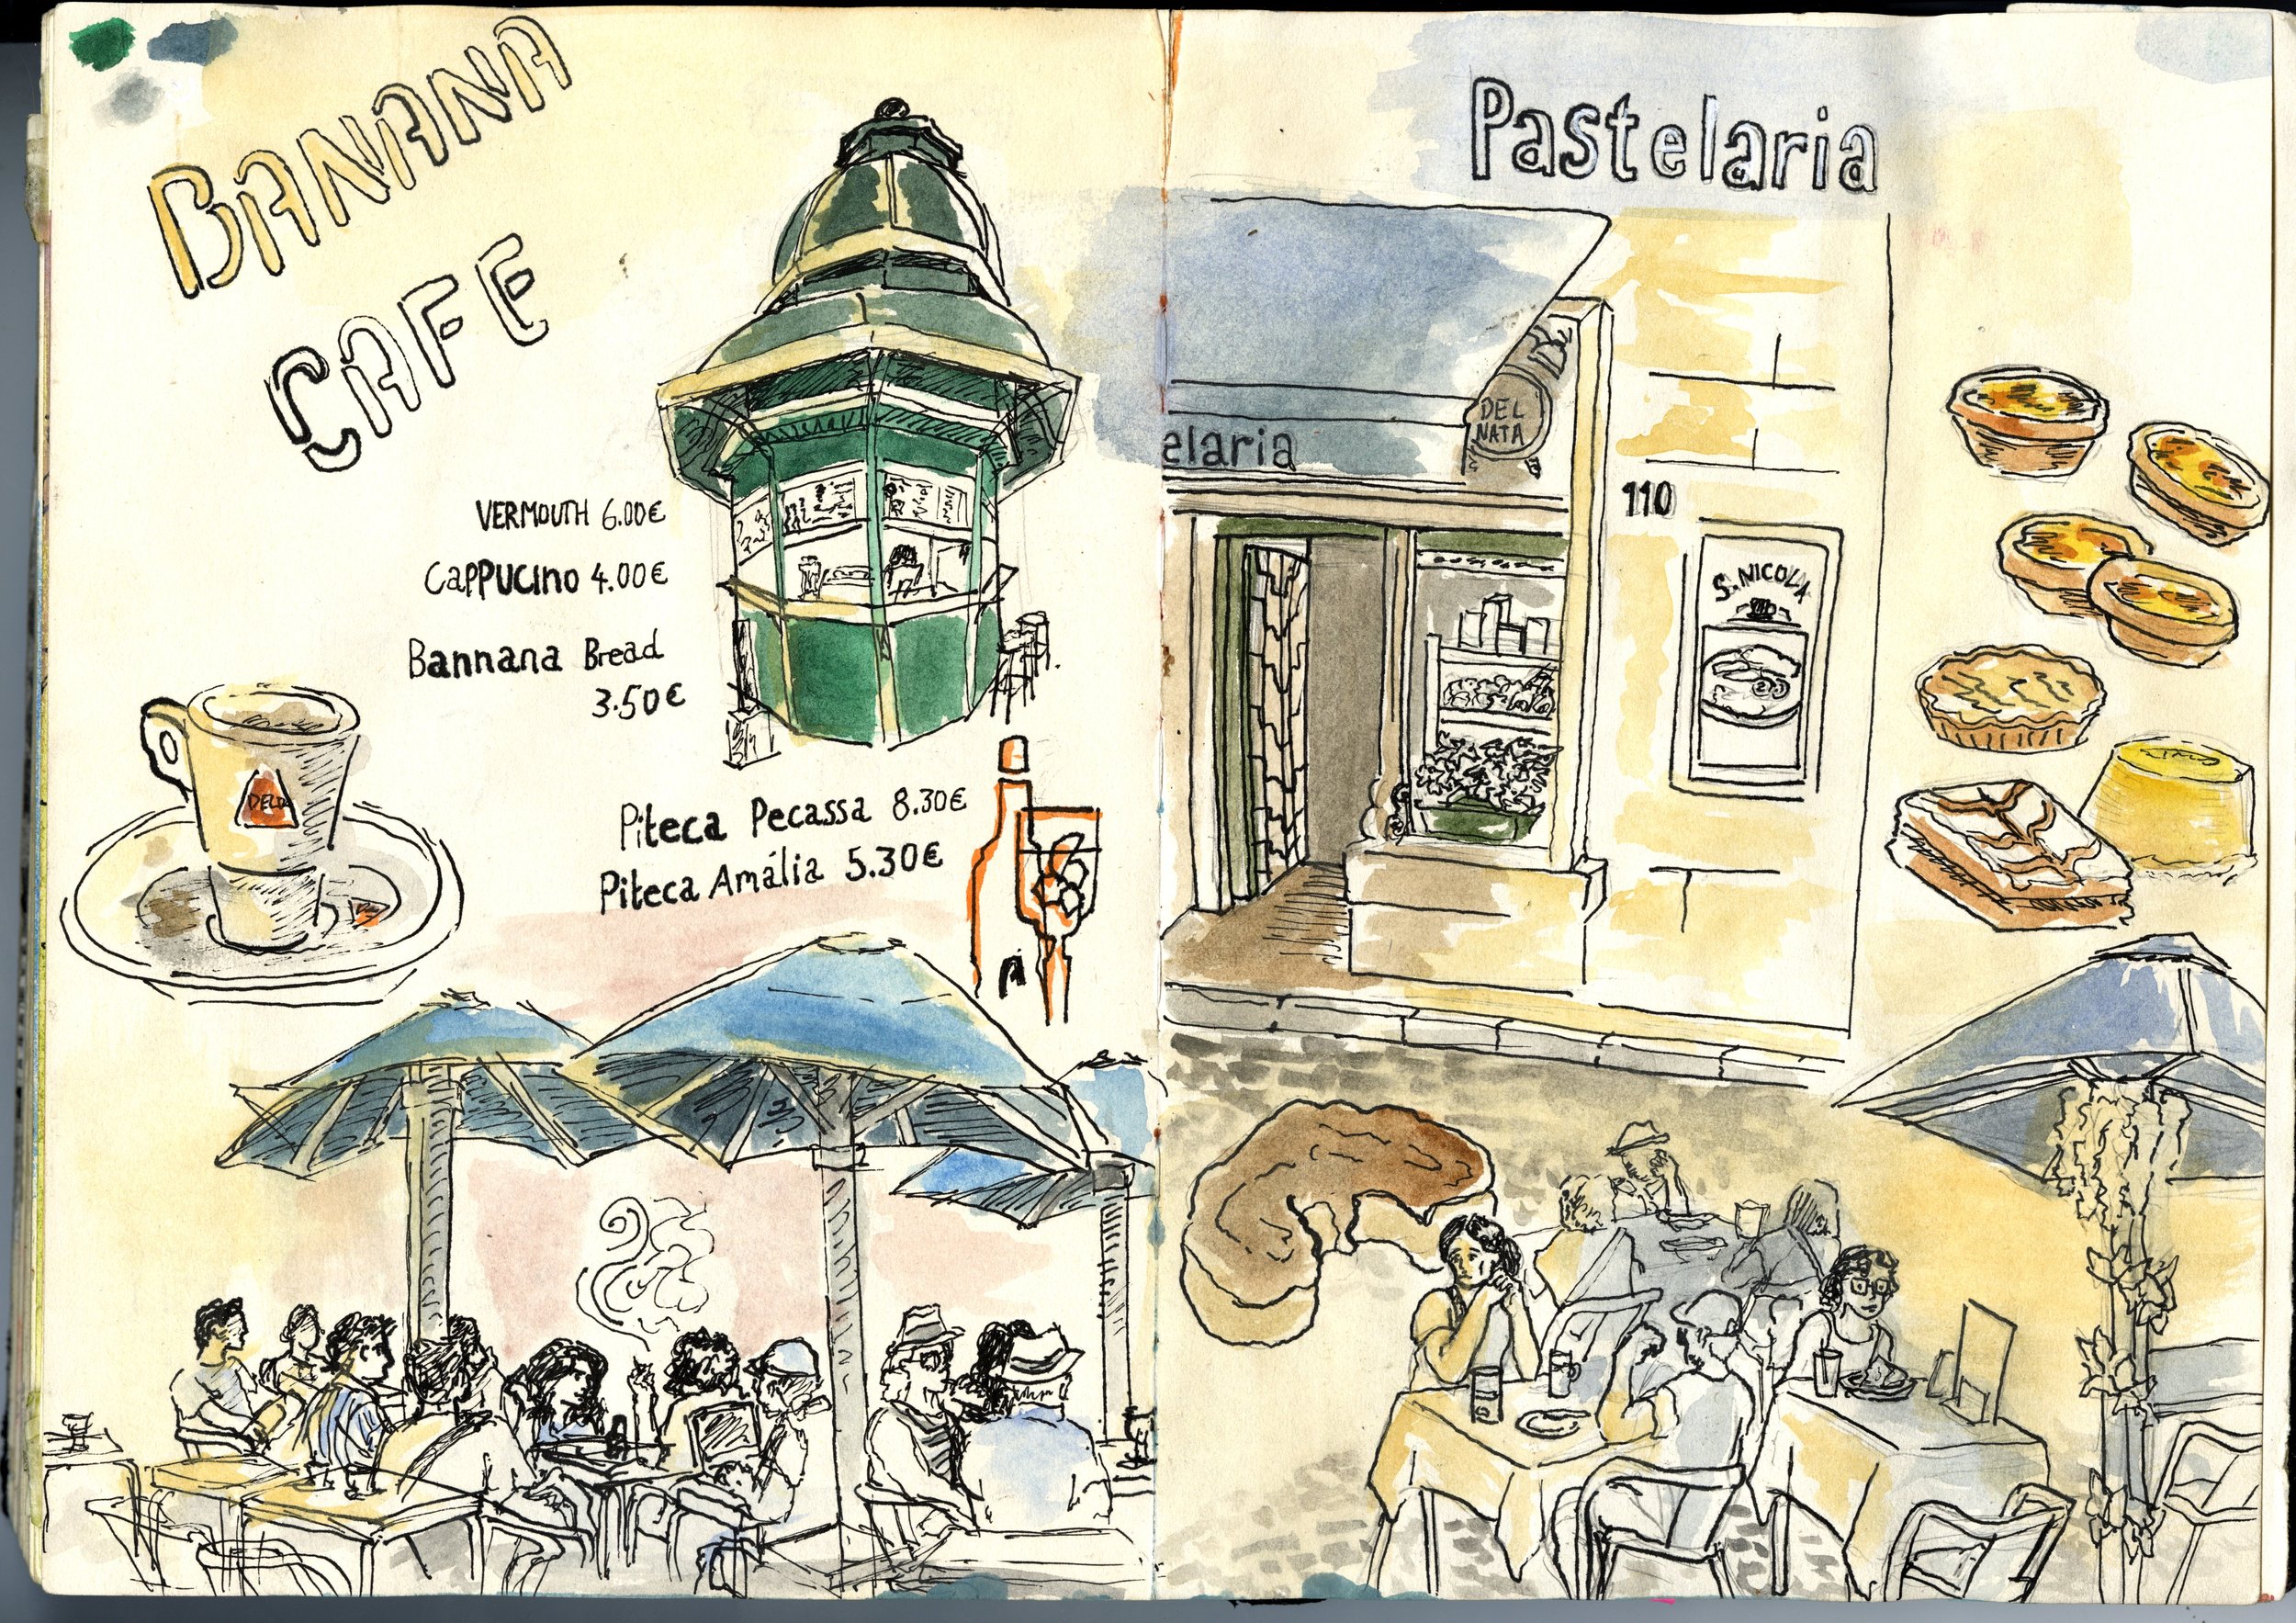 BANANA
CAFE
VERMOUTH 6.00€
CAPPUCINO 4.00€
Bannana Bread
3.50€
Piteca Pecassa 8.30€
Piteca Amália 5.30€
DELTA
Pastelaria
DEL
NATA
elaria
110
S. NICOLA